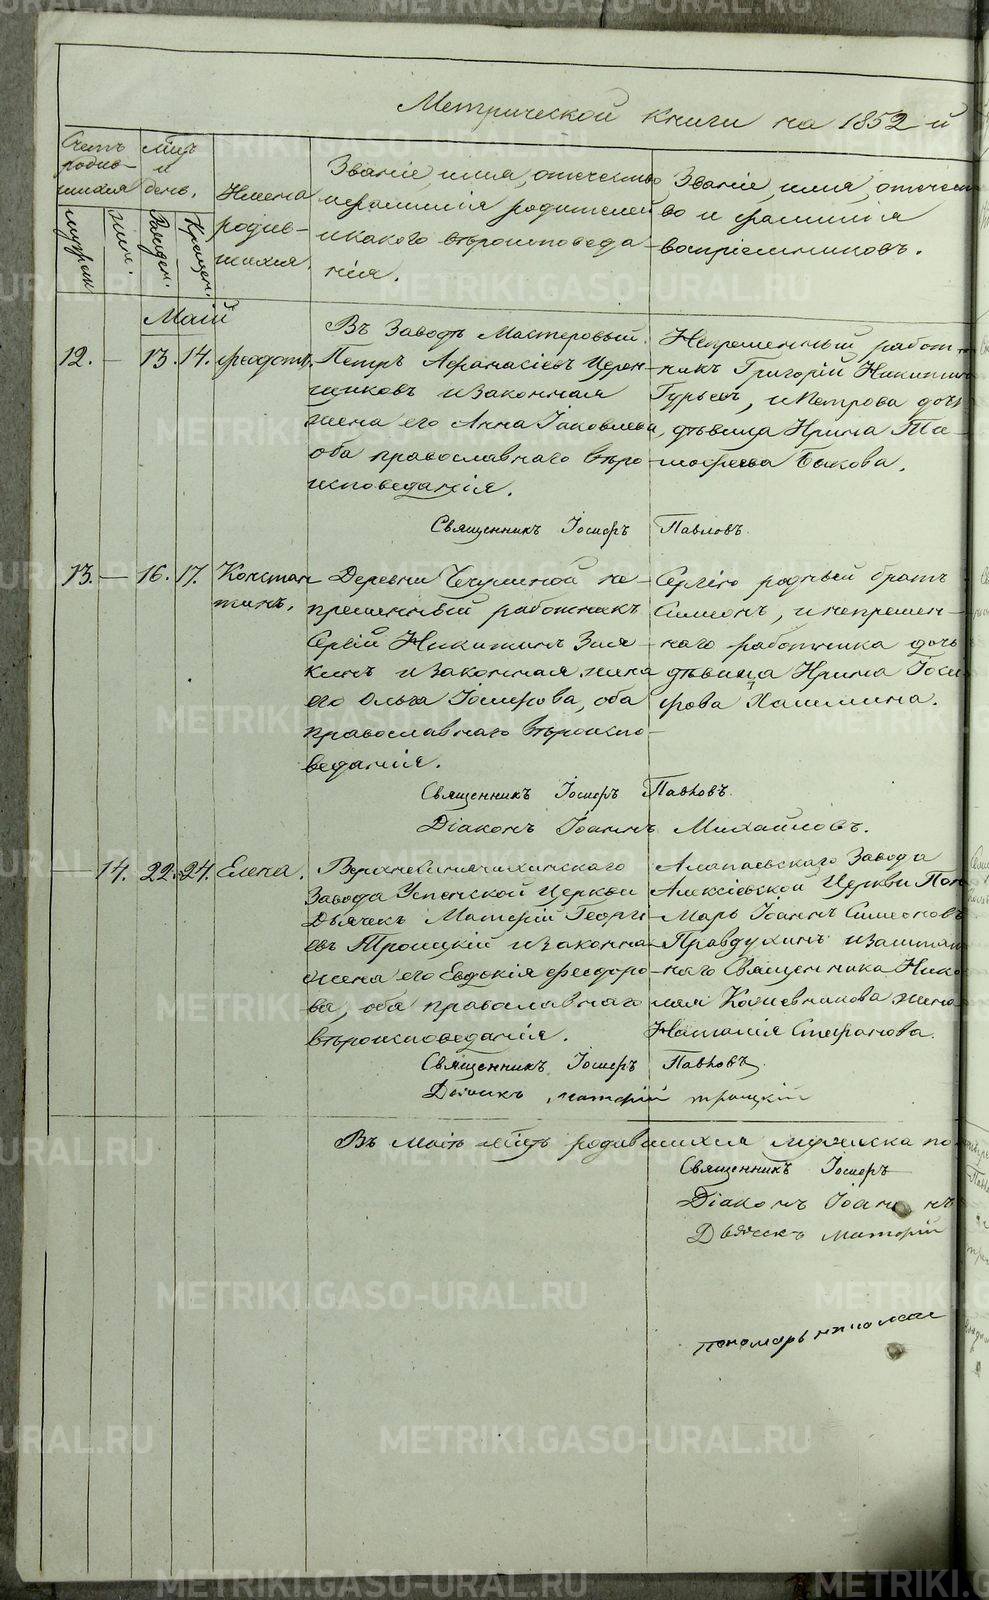 Метрической книги на 1852 й
Счетъ родив-
шихся
Мцъ
и
день.
мужеск
женс.
Рожден.
Крещен.
Имена
родив-
шихся.
Званіе, имя, отечество
и фамилія родителей
и какого вѣроисповеда
нія.
Званіе, имя, отечест
во и фамилія
воспріемниковъ.
Маій
12. — 13. 14. Феодотъ.
Въ Заводѣ Мастеровый
Петръ Афанасіевъ
щиковъ и законная
жена его Анна Іаковлева,
оба православнаго вѣро
исповеданія.
Непременный работ
никъ Григорій Никитинъ
Гурьевъ, и Петрова дочь
дѣвица Ирина Ти-
мофеева Быкова.
Священникъ Іосифъ Павловъ.
13. — 16. 17. Констан
тинъ.
Деревни не-
пременный работникъ
Сергій Никитинъ Зыя
кинъ и законная жена
его Ольга Іосифова, оба
православнаго вѣроиспо-
веданія.
Сергію родный братъ
Симеонъ, и непремен-
наго работника дочь
дѣвица Ирина Іоси
фова
Священникъ Іосифъ Павловъ.
Діаконъ Іоаннъ Михайловъ.
— 14. 22. 24. Елена.
Верхнесинячихинскаго
Завода Успенской Церкви
Дьячекъ Матфій Георгі-
евъ Троицкій и законна
жена его Евдокія Феодоро-
ва, оба православнаго
вѣроисповеданія.
Алапаевскаго Завода
Алексіевской Церкви Поно
марь Іоаннъ Симеоновъ
Правдухинъ и заштат
наго Священника Нико
лая Кожевникова жена
Наталія Стефанова.
Священникъ Іосифъ Павловъ.
Дьячекъ матфій троицкій
Въ маіѣ мцѣ родившихся мужеска по
Священникъ Іосифъ
Діаконъ Іоаннъ
Дьячекъ матфій
пономарь николай
METRIKI.GASO-URAL.RU